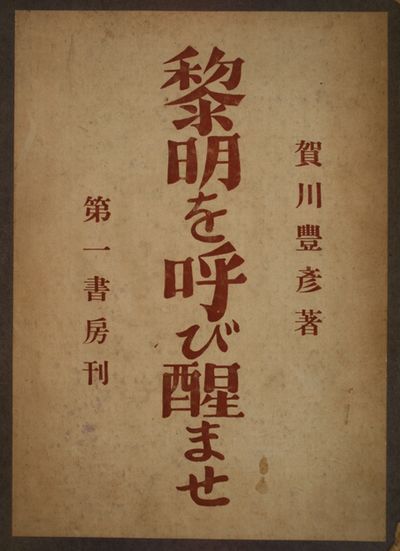 賀川豐彥著
黎明を呼び醒ませ
第一書房刊